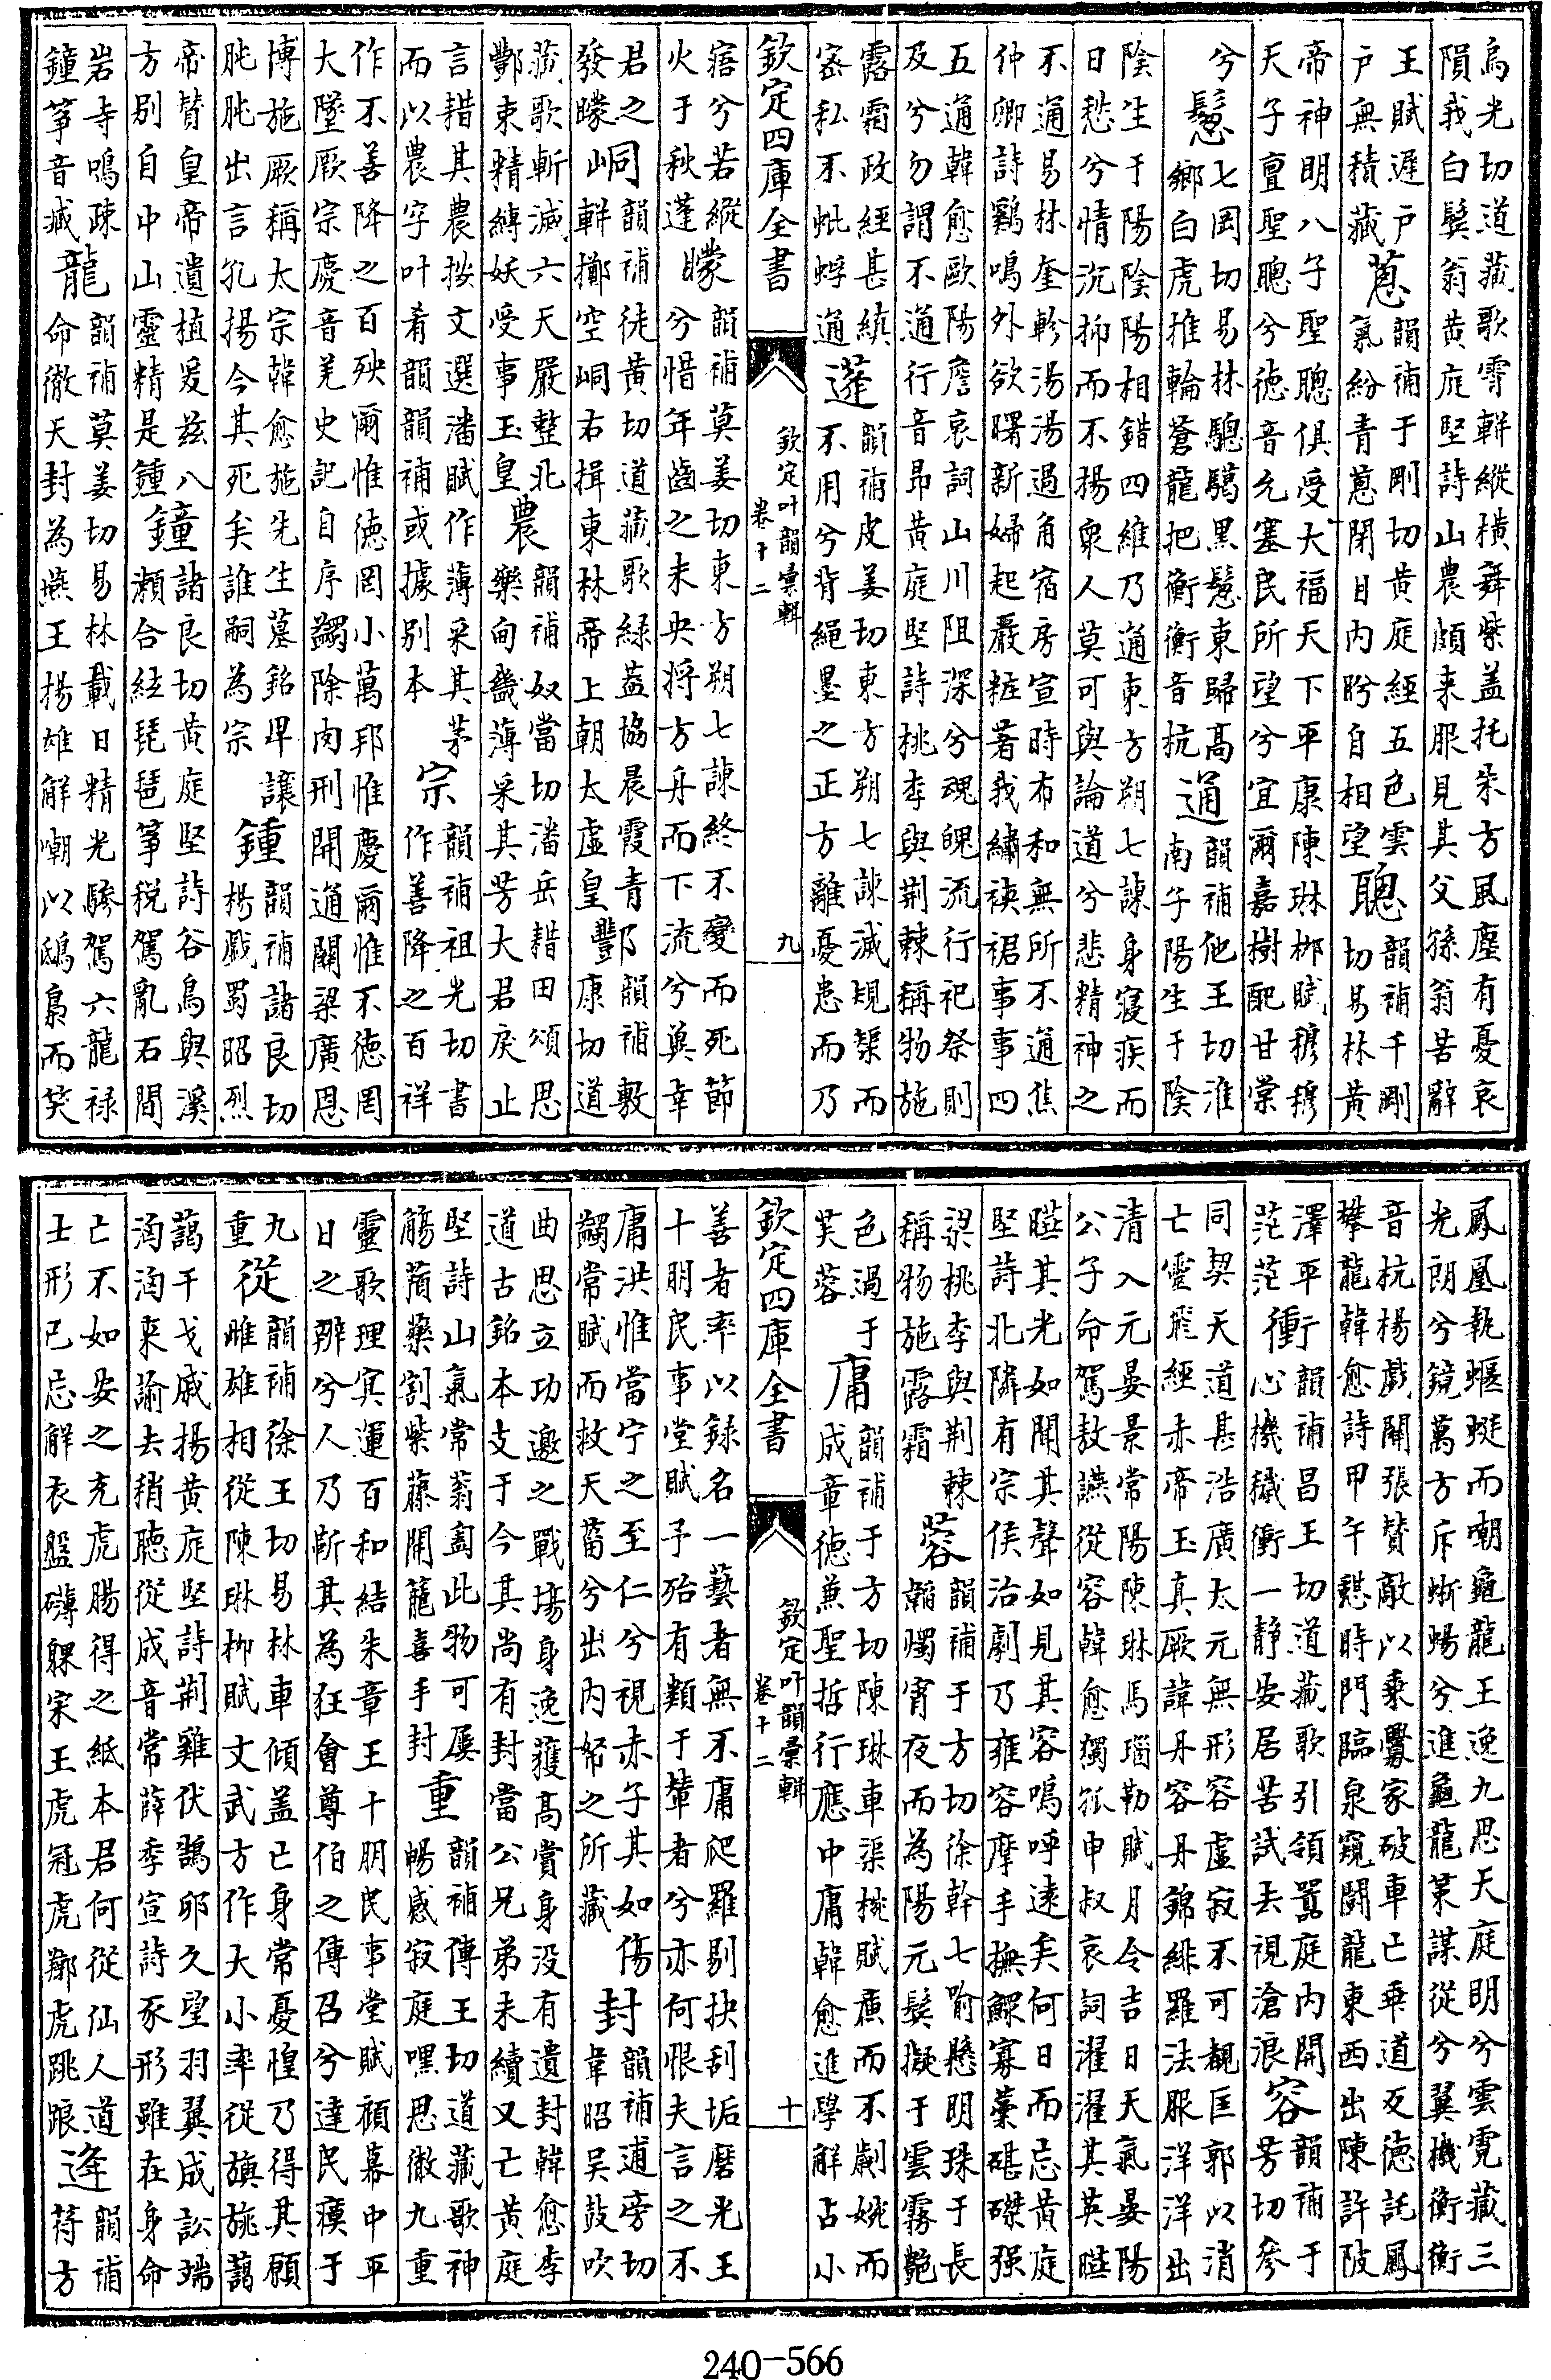 烏光切道藏歌雪軿縱横舞紫盖托朱方風塵有憂哀
隕我白鬓翁黄庭堅詩山農頗来服見其父孫翁苦辭
王賦遲戶
戶無積藏
蔥
韻補于剛切黄庭經五色雲
氣紛青蔥閉目内眄自相望
聰
韻補千剛
切易林黄
帝神明八子聖聰俱受大福天下平康陳琳柳賦穆穆
天子亶聖聰兮徳音允塞民所望兮宜爾嘉樹配甘棠
兮
鬷
七岡切易林驄騩黑鬷東歸髙
鄉白虎推輪蒼龍把衡衡音杭
通
韻補他王切淮
南子陽生于隂
隂生于陽隂陽相錯四維乃通東方朔七諫身寢疾而
日愁兮情沉抑而不揚衆人莫可與論道兮悲精神之
不通易林奎軫湯湯過角宿房宣時布和無所不通焦
仲卿詩鷄鳴外欲曙新婦起嚴粧著我繡裌裙事事四
五通韓愈歐陽詹哀詞山川阻深兮魂魄流行祀祭則
及兮勿謂不通行音昂黄庭堅詩桃李與荆棘稱物施
露霜政經甚縝
密私不蚍蜉通
蓬
韻補皮姜切東方朔七諫滅規榘而
不用兮背繩墨之正方離憂患而乃
欽定四庫全書
欽定叶韻彚輯
卷十二
九
寤兮若縱
火于秋蓬
曚
韻補莫姜切東方朔七諫終不變而死節
兮惜年齒之未央將方舟而下流兮冀幸
君之
發曚
峒
韻補徒黄切道藏歌緑蓋協晨霞青
軿擲空峒右揖東林帝上朝太虛皇
酆
韻補敷
康切道
藏歌斬滅六天嚴整北
酆束精縛妖受事玉皇
農
韻補奴當切潘岳耤田頌思
樂甸畿薄采其芳大君戾止
言耤其農按文選潘賦作薄采其茅
而以農字叶肴韻韻補或據别本
宗
韻補祖光切書
作善降之百祥
作不善降之百殃爾惟徳罔小萬邦惟慶爾惟不徳罔
大墜厥宗慶音羌史記自序蠲除肉刑開通關梁廣恩
博施厥稱太宗韓愈施先生墓銘卑讓
肫肫出言孔揚今其死矣誰嗣為宗
鍾
韻補諸良切
楊戲蜀昭烈
帝賛皇帝遺植爰兹八
方别自中山靈精是鍾
鐘
諸良切黄庭堅詩谷鳥與溪
瀬合絃琵琶箏税駕亂石間
岩寺鳴疎
鐘箏音臧
龍
韻補莫姜切易林載日精光驂駕六龍禄
命徹天封為燕王揚雄解嘲以鴟梟而笑
鳳凰執蝘蜓而嘲龜龍王逸九思天庭明兮雲霓藏三
光朗兮鏡萬方斥蜥蜴兮進龜龍策謀從兮翼機衡衡
音杭楊戲關張賛敵以乗釁家破軍亡乖道反徳託鳳
攀龍韓愈詩甲午憇時門臨泉窺鬬龍東西出陳許陂
澤平
茫茫
衝
韻補昌王切道藏歌引領囂庭内開
心機穢衝一静安居苦試去視滄浪
容
韻補于
芳切參
同契天道甚浩廣太元無形容虛寂不可覩匡郭以消
亡靈飛經赤帝玉真厥諱丹容丹錦緋羅法服洋洋出
清入元晏景常陽陳琳馬瑙勒賦月令吉日天氣晏陽
公子命駕敖讌從容韓愈獨孤申叔哀詞濯濯其英曄
曄其光如聞其聲如見其容嗚呼逺矣何日而忘黄庭
堅詩北隣有宗侯治劇乃雍容摩手撫鰥寡藁磔强
梁桃李與荆棘
稱物施露霜
蓉
韻補于方切徐幹七喻懸明珠于長
韜燭宵夜而為陽元鬓擬于雲霧艶
色過于
芙蓉
庸
韻補于方切陳琳車渠椀賦廉而不劌婉而
成章徳兼聖哲行應中庸韓愈進學解占小
欽定四庫全書
欽定叶韻彚輯
卷十二
十
善者率以録名一藝者無不庸爬羅剔抉刮垢磨光王
十朋民事堂賦予殆有類于輦者兮亦何恨夫言之不
庸洪惟當宁之至仁兮視赤子其如傷
蠲常賦而救天菑兮出内帑之所藏
封
韻補逋旁切
韋昭吴鼓吹
曲思立功邀之戰塲身逸獲髙賞身没有遺封韓愈李
道古銘本支于今其尚有封當公兄弟未續又亡黄庭
堅詩山氣常蓊匌此物可屢
觴藉藥割紫藤開籠喜手封
重
韻補傳王切道藏歌神
暢感寂庭嘿思徹九重
靈歌理冥運百和結朱章王十朋民事堂賦顧幕中平
日之辦兮人乃斷其為狂會尊伯之傳召兮達民瘼于
九
重
從
韻補徐王切易林車傾盖已身常憂惶乃得其願
雌雄相從陳琳栁賦文武方作大小率從旗旐藹
藹干戈戚揚黄庭堅詩荆雞伏鵠卵久望羽翼成訟端
洶洶来諭去稍聴從成音常薛季宣詩豕形雖在身命
亡不如安之充虎腸得之紙本君何從仙人道
士形已忘解衣盤礴躶宋王虎冠虎鄉虎跳踉
逄
韻補
符方
240-566